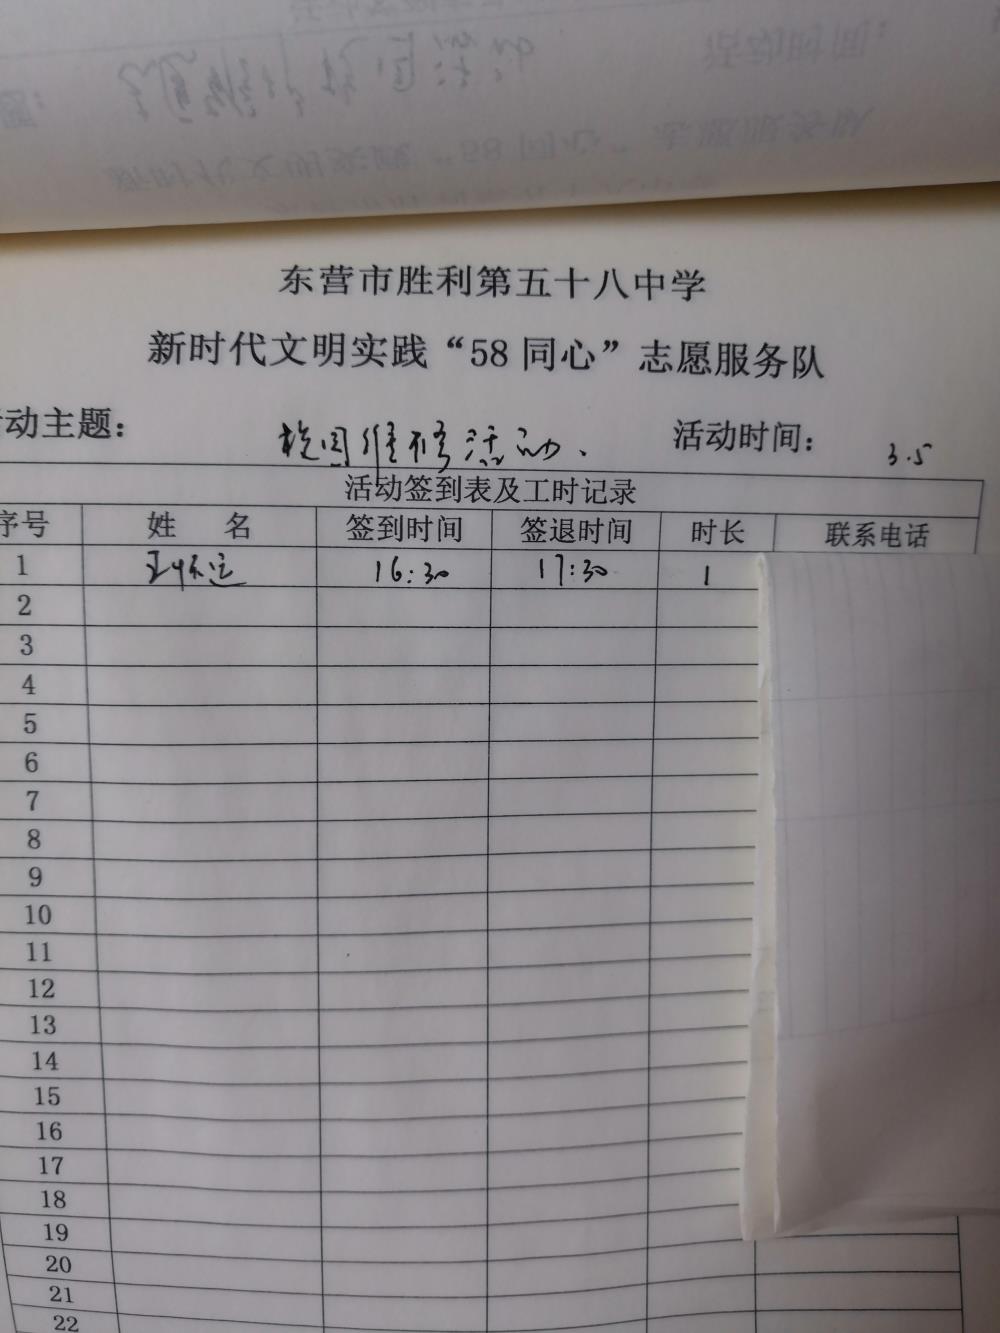 东营市胜利第五十八中学
新时代文明实践“58同心”志愿服务队
活动主题： 校园维修活动、 活动时间： 3.5
活动签到表及工时记录
序号 姓 名 签到时间 签退时间 时长 联系电话
1 王怀运 16:30 17:30 1
2
3
4
5
6
7
8
9
10
11
12
13
14
15
16
17
18
19
20
21
22